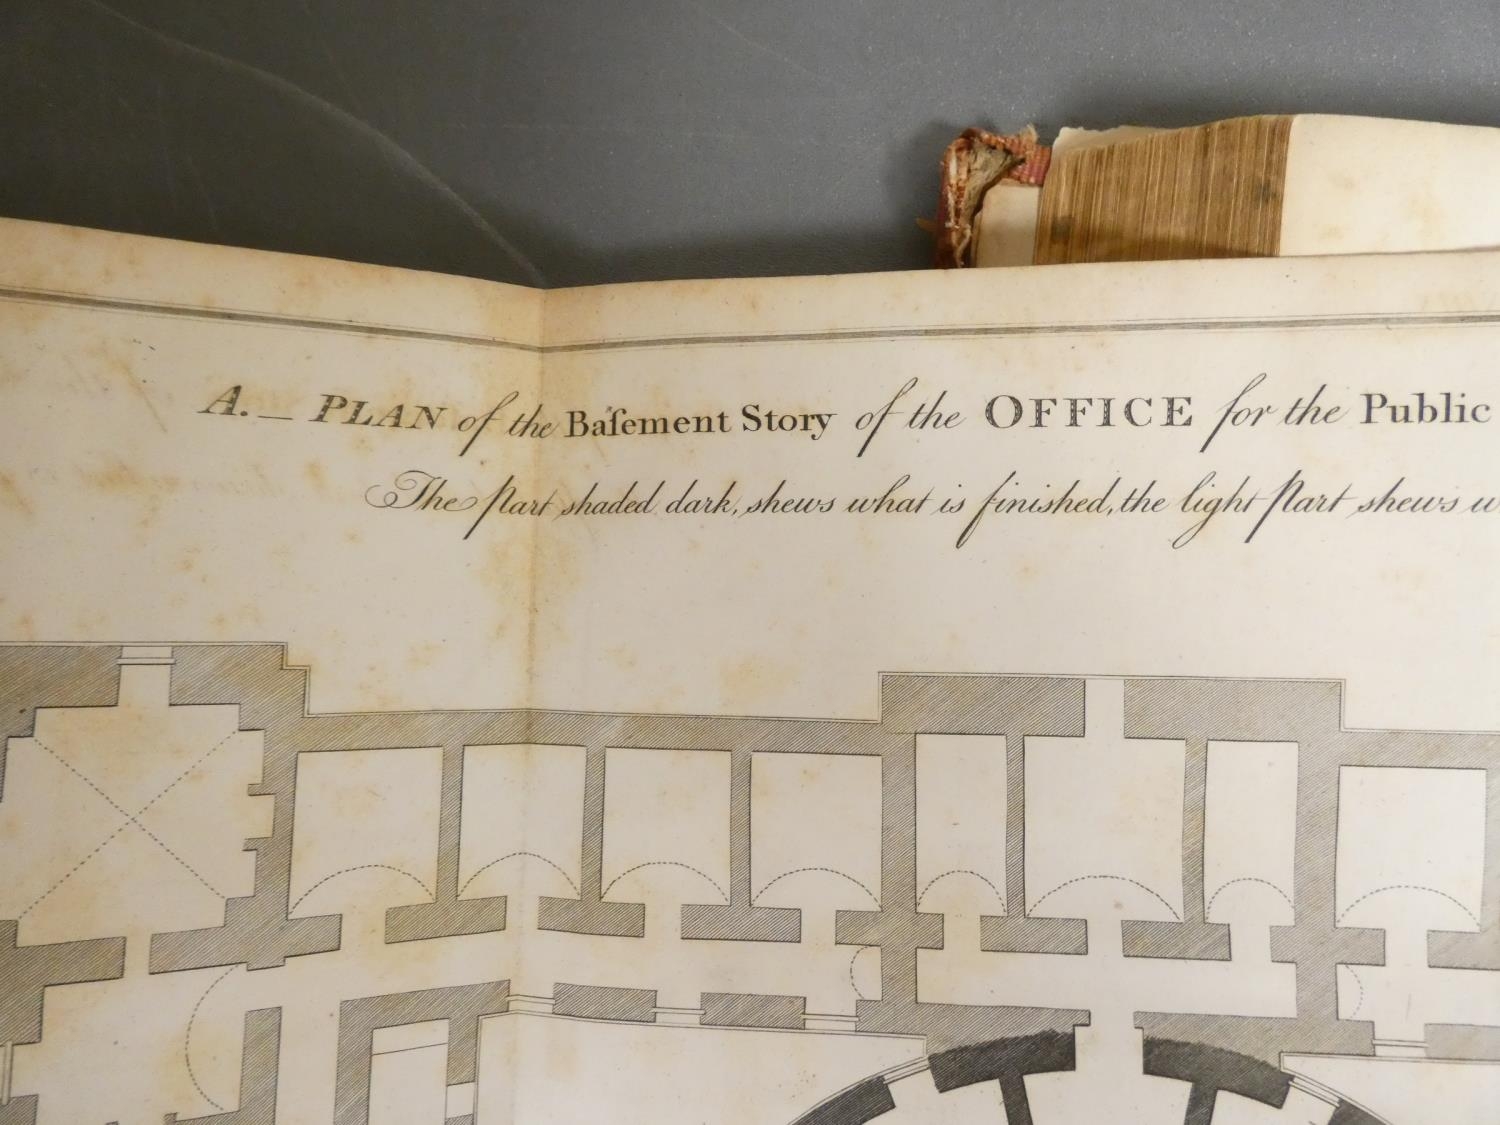 A. — PLAN of the Baſement Story of the OFFICE for the Public
The Part shaded dark, shews what is finished, the light Part shews